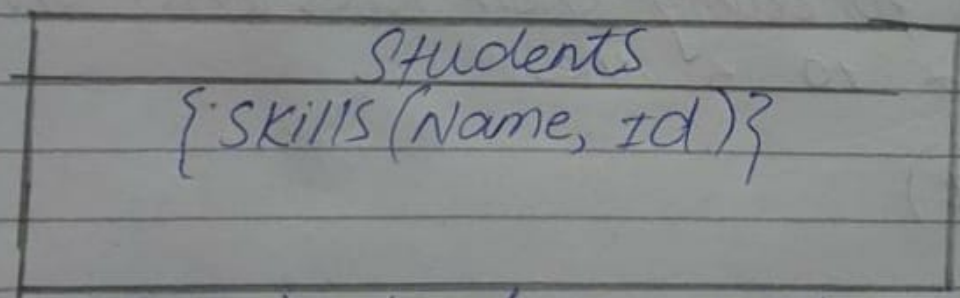 Students
{Skills(Name, Id)}